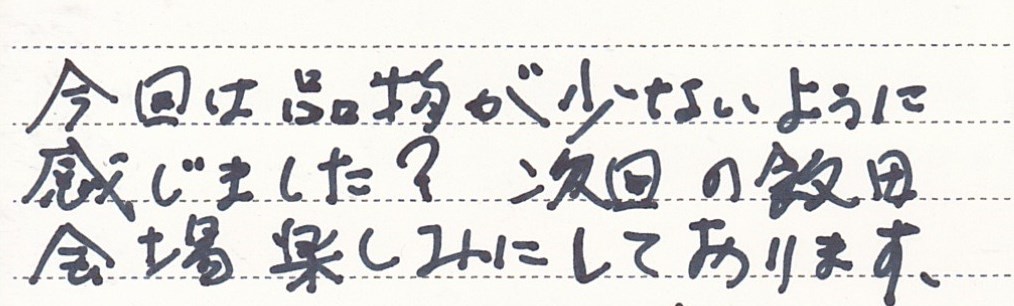 今回は品物が少ないように
感じました? 次回の飯田
会場楽しみにしております、